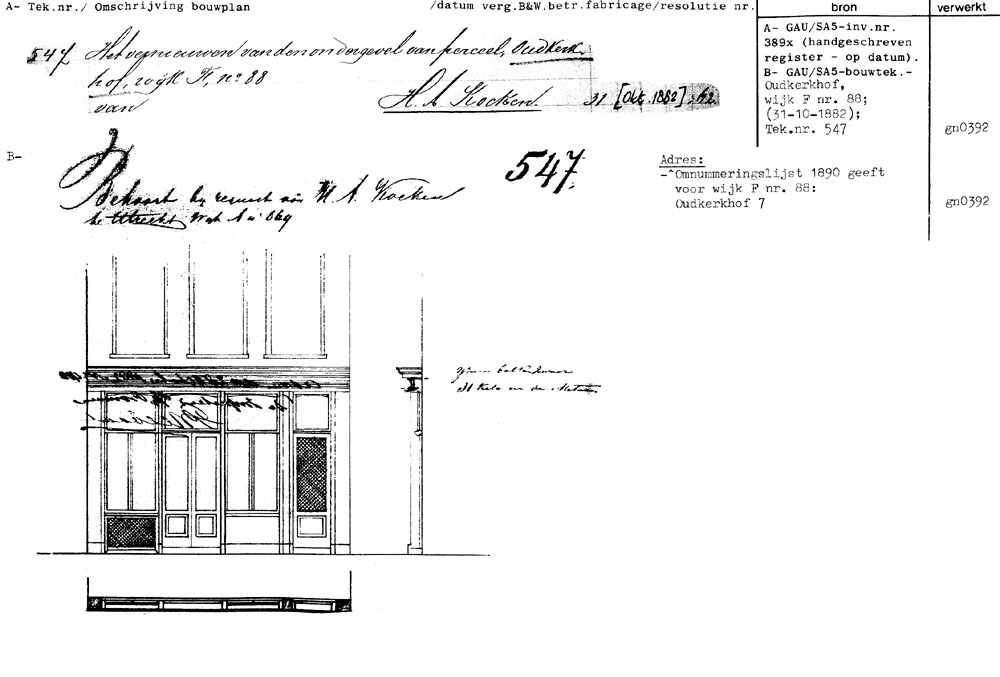 A- Tek.nr./ Omschrijving bouwplan /datum verg.B&W.betr.fabricage/resolutie nr.
bron
verwerkt
547 Het vernieuwen van den ondergevel van perceel, Oudkerk
hof, wijk F, no 88
van H. A. Kocken. 31 [Okt. 1882]
A- GAU/SA5-inv.nr.
389x (handgeschreven
register - op datum).
B- GAU/SA5-bouwtek.-
Oudkerkhof,
wijk F nr. 88;
(31-10-1882);
Tek.nr. 547
gn0392
B-
547.
Behoort bij request van H. A. Kocken
te Utrecht Wijk A no 869
Adres:
-^Omnummeringslijst 1890 geeft
voor wijk F nr. 88:
Oudkerkhof 7
gn0392